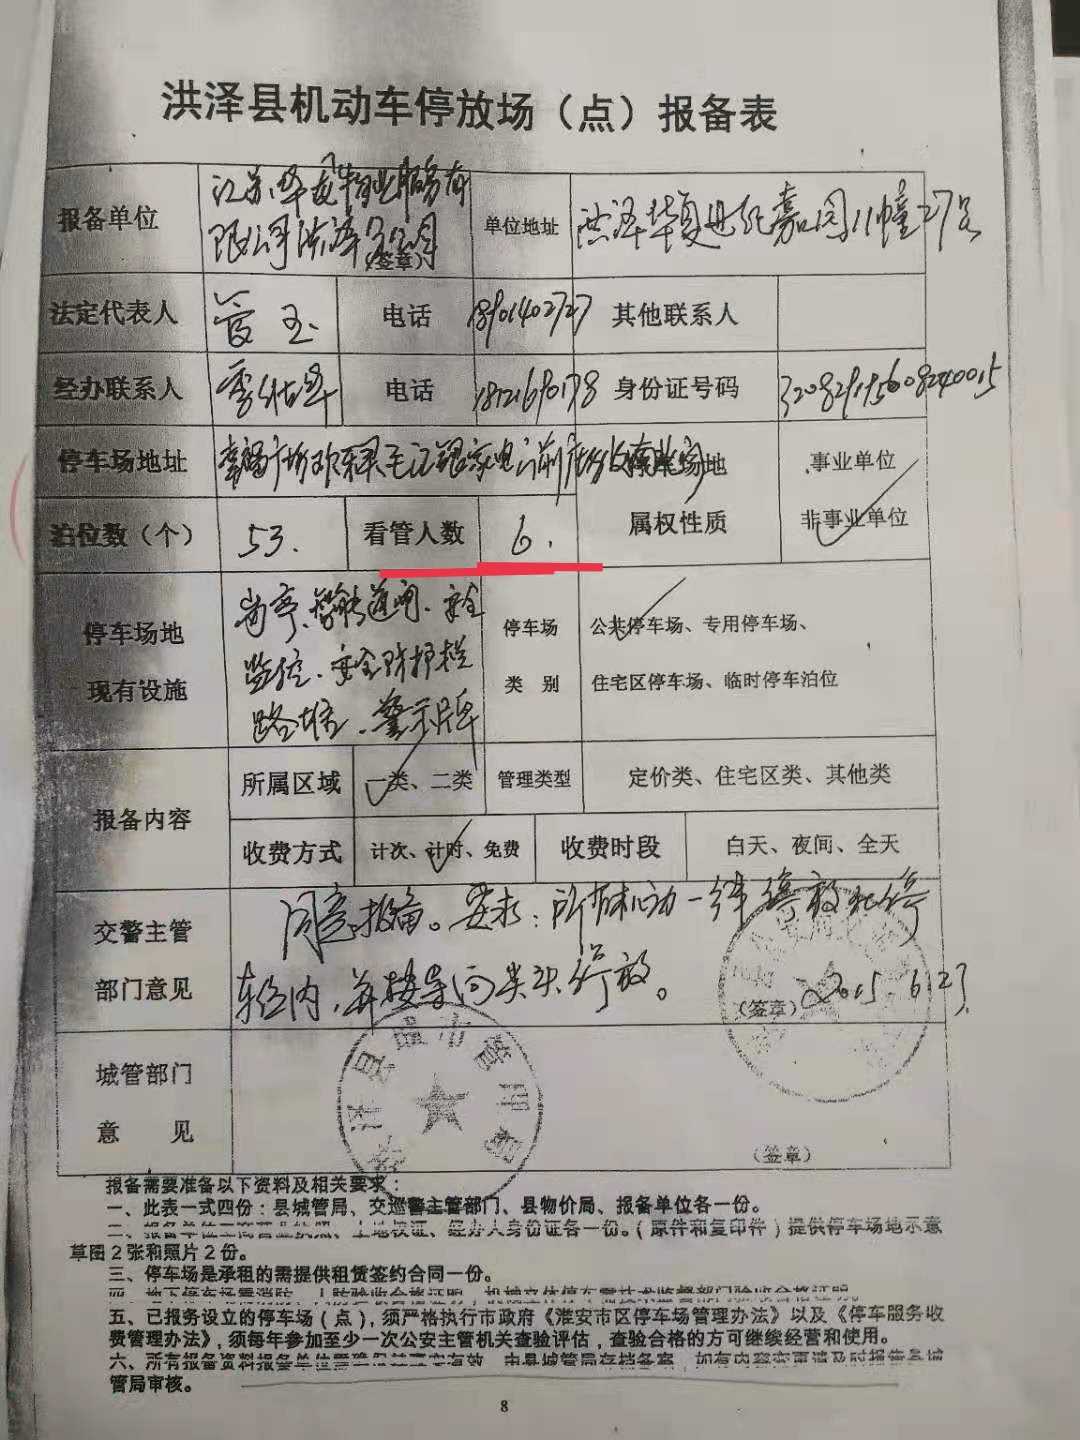 洪泽县机动车停放场（点）报备表
报备单位
江苏华夏物业服务有
限公司洪泽分公司
（签章）
单位地址
洪泽华夏世纪嘉园11幢27号
法定代表人
管玉
电话
其他联系人
经办联系人
电话
身份证号码
停车场地址
停车场地
属权性质
事业单位
非事业单位
泊位数（个）
53.
看管人数
6.
停车场地
现有设施
岗亭、智能道闸、安全
监控、安全防护栏
路堆、警示牌
停车场
类 别
公共停车场、专用停车场、
住宅区停车场、临时停车泊位
报备内容
所属区域
一类、二类
管理类型
定价类、住宅区类、其他类
收费方式
计次、计时、免费
收费时段
白天、夜间、全天
交警主管
部门意见
同意报备。要求：所有机动一律停放
并按导向类头停放。
（签章）
2015.6.23.
城管部门
意 见
泽县城市管理局
（签章）
报备需要准备以下资料及相关要求：
一、此表一式四份：县城管局、交巡警主管部门、县物价局、报备单位各一份。
二、报备单位工商营业执照、土地权证、经办人身份证各一份。（原件和复印件）提供停车场地示意
草图2张和照片2份。
三、停车场是承租的需提供租赁签约合同一份。
五、已报务设立的停车场（点），须严格执行市政府《淮安市区停车场管理办法》以及《停车服务收
费管理办法》，须每年参加至少一次公安主管机关查验评估，查验合格的方可继续经营和使用。
管局审核。
8